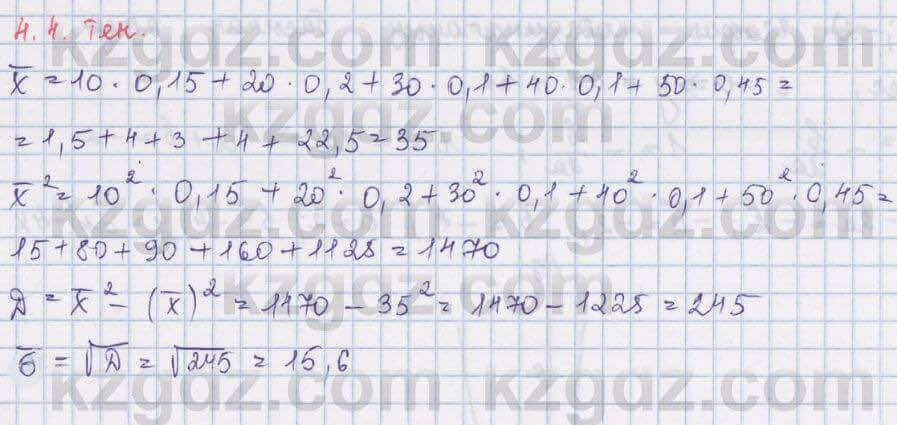 4.4. Тен.
x̄ = 10 · 0,15 + 20 · 0,2 + 30 · 0,1 + 40 · 0,1 + 50 · 0,45 =
= 1,5 + 4 + 3 + 4 + 22,5 = 35
x̄² = 10² · 0,15 + 20² · 0,2 + 30² · 0,1 + 40² · 0,1 + 50² · 0,45 =
15 + 80 + 90 + 160 + 1125 = 1470
D = x̄² – (x̄)² = 1470 – 35² = 1470 – 1225 = 245
σ̄ = √D = √245 = 15,6
kzgdz.com
kzgdz.com
kzgdz.com
kzgdz.com
kzgdz.com